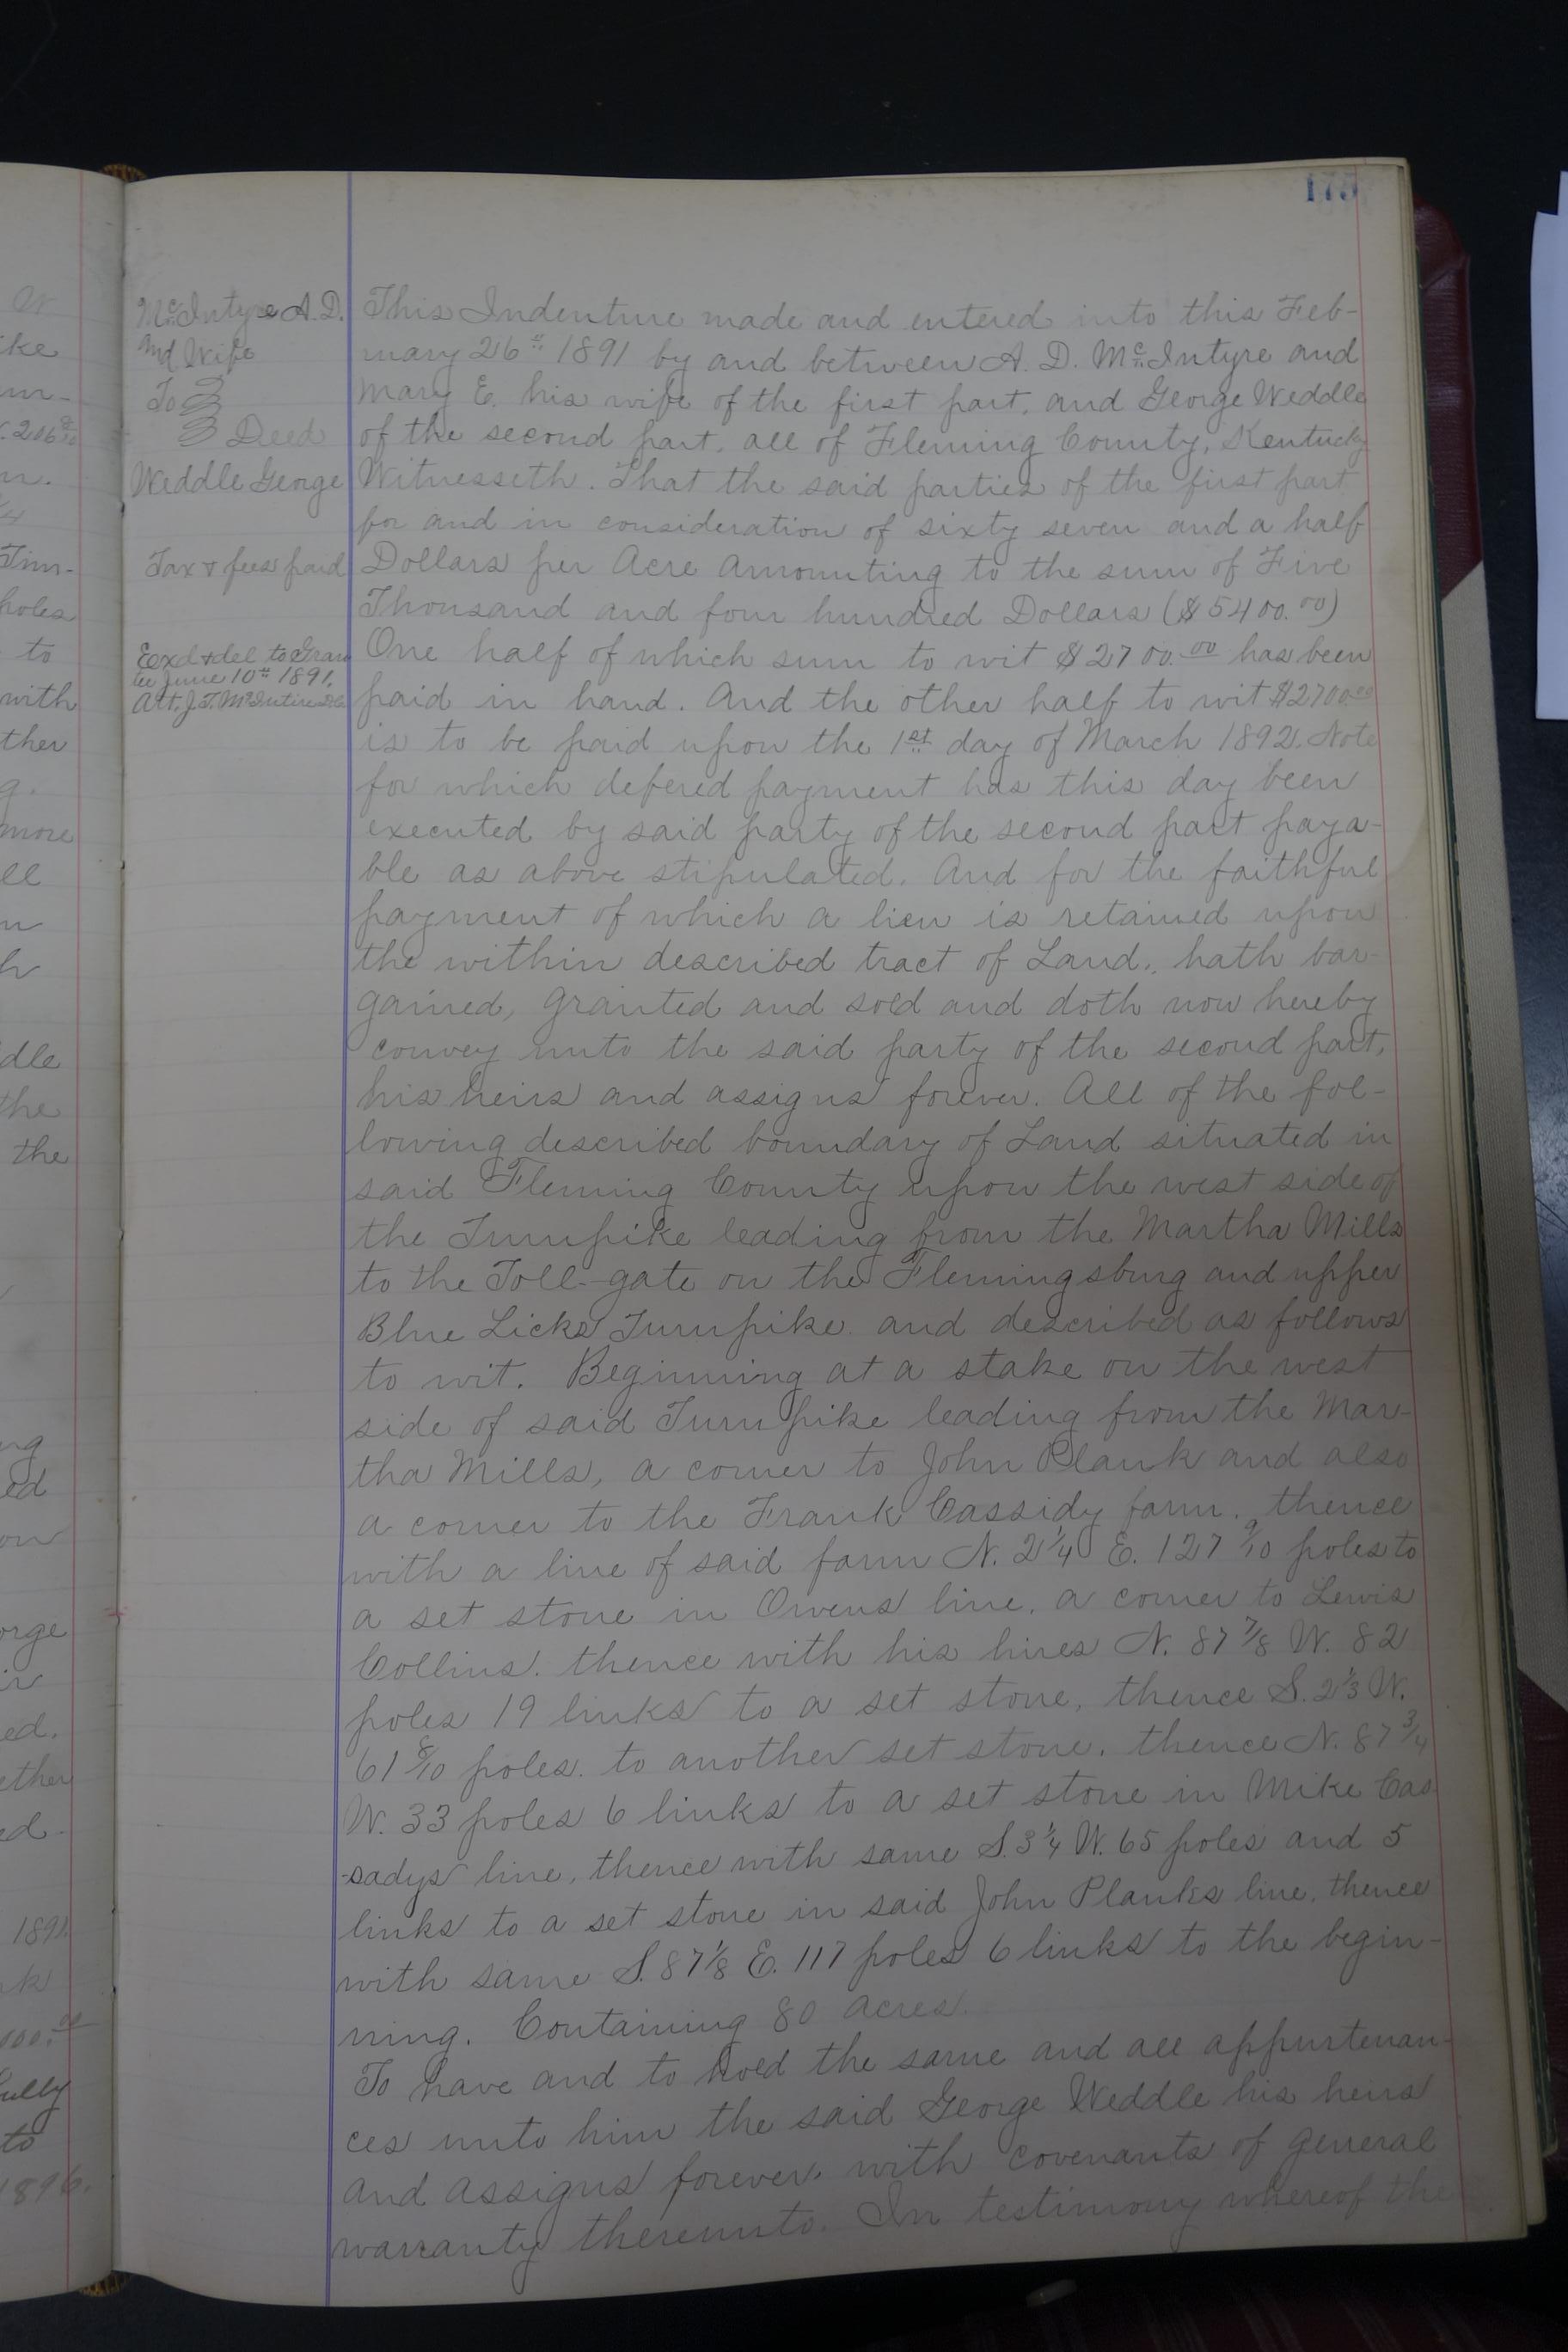 175
McIntyre A. D.
and Wife
To
Deed
Weddle George
Tax & fees paid
Exd & del to Gran
tee June 10th 1891.
Att. J. T. McIntire D.C.
This Indenture made and entered into this Feb-
ruary 26th 1891 by and between A. D. McIntyre and
Mary E. his wife of the first part, and George Weddle
of the second part. all of Fleming County, Kentucky
Witnesseth. That the said parties of the first part
for and in consideration of sixty seven and a half
Dollars per Acre Amounting to the sum of Five
Thousand and four hundred Dollars ($5400.00)
One half of which sum to wit $2700.00 has been
paid in hand. And the other half to wit $2700.00
is to be paid upon the 1st day of March 1892. Note
for which defered payment has this day been
executed by said party of the second part paya-
ble as above stipulated. And for the faithful
payment of which a lien is retained upon
the within described tract of Land, hath bar-
gained, granted and sold and doth now hereby
convey unto the said party of the second part,
his heirs and assigns forever. All of the fol-
lowing described boundary of Land situated in
said Fleming County upon the west side of
the Turnpike leading from the Martha Mills
to the Toll-gate on the Flemingsburg and upper
Blue Licks Turnpike and described as follows
to wit. Beginning at a stake on the west
side of said Turnpike leading from the Mar-
tha Mills, a corner to John Plank and also
a corner to the Frank Cassidy farm, thence
with a line of said farm N. 2 1/4 E. 127 9/10 poles to
a set stone in Owens line, a corner to Lewis
Collins. thence with his lines N. 87 7/8 W. 82
poles 19 links to a set stone, thence S. 2 1/3 W.
61 8/10 poles. to another set stone. thence N. 87 3/4
W. 33 poles 6 links to a set stone in Mike Cas
-sadys line, thence with same S. 3 1/4 W. 65 poles and 5
links to a set stone in said John Planks line, thence
with same S. 87 1/8 E. 117 poles 6 links to the begin-
ning. Containing 80 acres.
To have and to hold the same and all appurtenan-
ces unto him the said George Weddle his heirs
and assigns forever. with covenants of general
warranty thereunto. In testimony whereof the